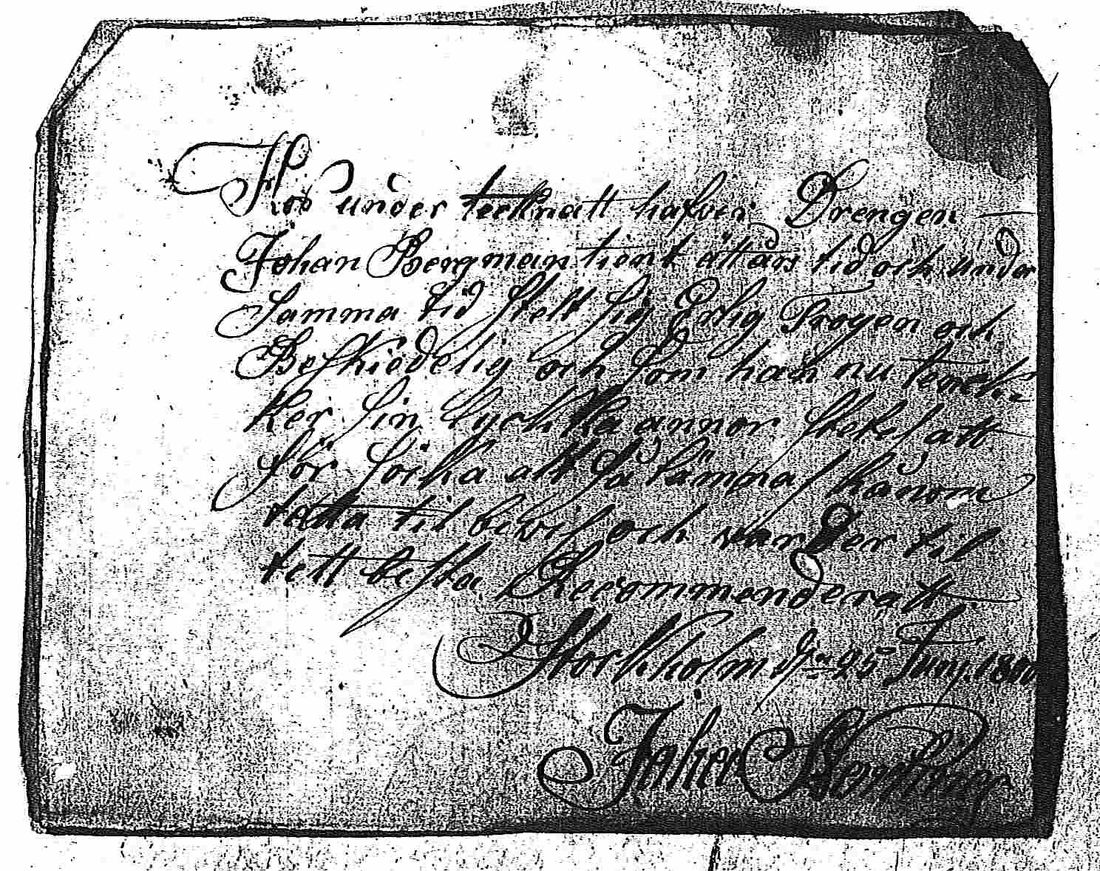 Hos under tecknatt hafver Drengen
Johan Bergman tient ått års tid och under
Samma tid stelt sig Erlig Trogen och
Beskiedelig och som han nu tenc-
ker sin lyckka annor stetes att
för söcka allt så lämnas hånom
tetta til bevis och var Der til
tett besta Recommenderatt
Stockholm d 25 Juny 18